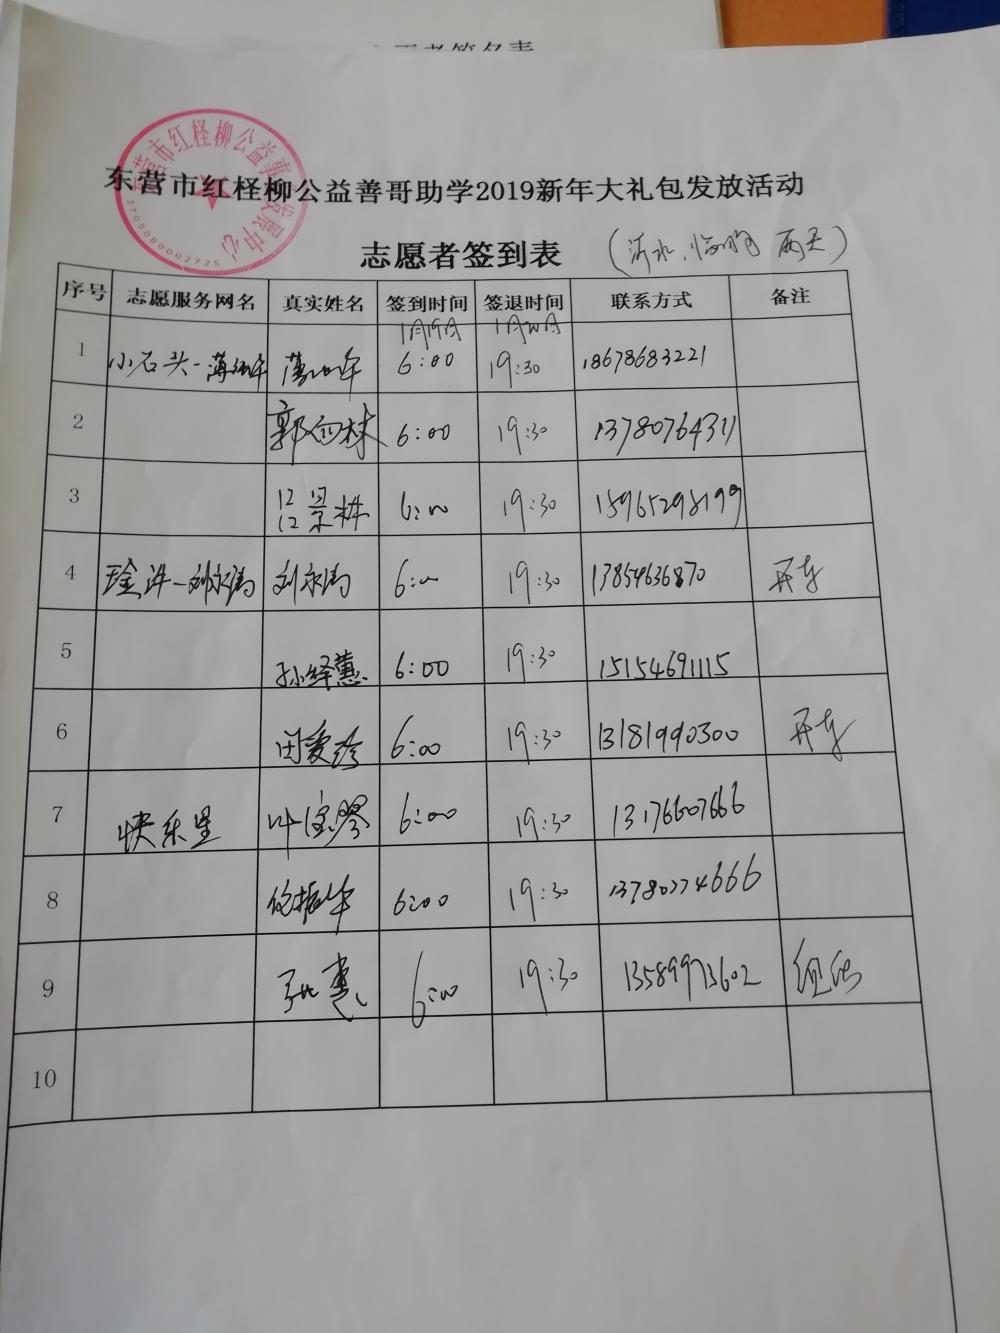 东营市红柽柳公益事业发展中心
3705060002725
东营市红柽柳公益善哥助学2019新年大礼包发放活动
志愿者签到表 (沂水、临朐 两天)
序号 志愿服务网名 真实姓名 签到时间 签退时间 联系方式 备注
1月19日 1月20日
1 小石头-薄 薄 6:00 19:30 18678683221
2 郭向林 6:00 19:30 13780764311
3 吕景林 6:00 19:30 15965298199
4 刘永涛 刘永涛 6:00 19:30 13854636870 开车
5 孙绎蕙 6:00 19:30 15154691115
6 田爱珍 6:00 19:30 13181990300 开车
7 快乐星 叶宝琴 6:00 19:30 13176607666
8 振华 6:00 19:30 13780774666
9 张惠 6:00 19:30 13589973602 组织
10